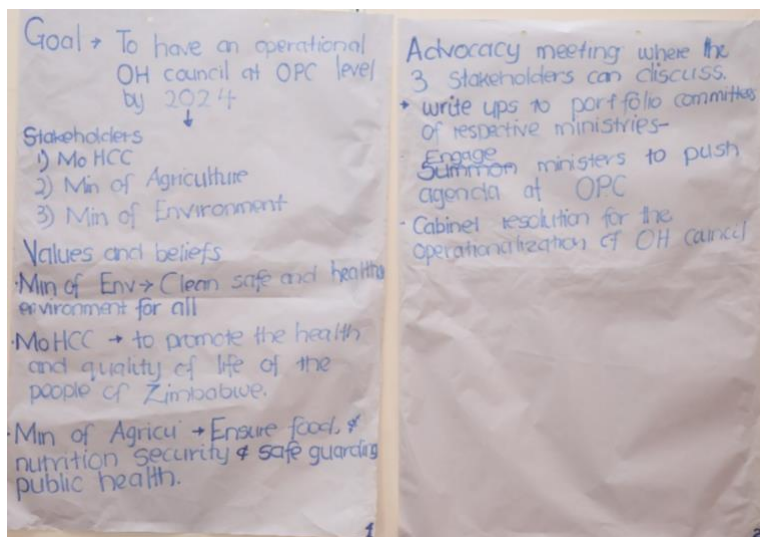 Goal → To have an operational
OH council at OPC level
by 2024
↓
Stakeholders
1) MoHCC
2) Min of Agriculture
3) Min of Environment
Values and beliefs
·Min of Env → Clean safe and healthy
environment for all
·MoHCC → to promote the health
and quality of life of the
people of Zimbabwe.
·Min of Agricu → Ensure food &
nutrition security & safe guarding
public health.
1
Advocacy meeting where the
3 stakeholders can discuss.
* write ups to portfolio committees
of respective ministries-
Engage
Summon ministers to push
agenda at OPC
- Cabinet resolution for the
operationalization of OH council
2